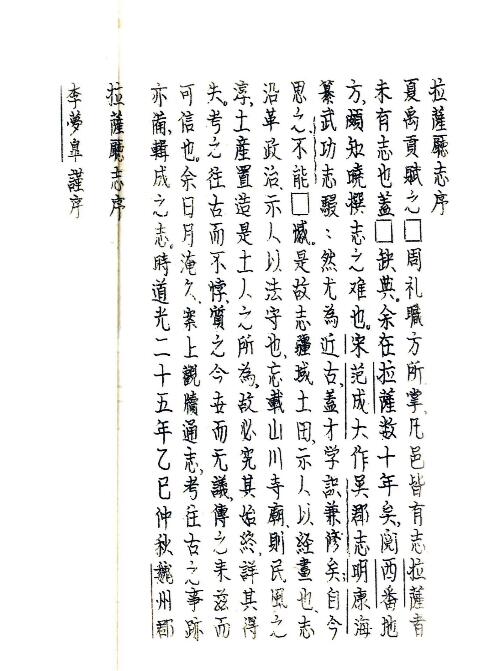 拉薩廳志序
夏禹貢賦之□周礼職方所掌，凡邑皆有志拉薩者
未有志也蓋□缺典。余在拉薩数十年矣，閱西番地
方，頗知曉撰志之难也。宋范成大作吴郡志明康海
纂武功志嚴：然尤為近古，蓋才学識兼修矣；自今
思之不能□憾。是故志疆域土田，示人以経畫也，志
沿革政治，示人以法守也，忘載山川寺廟，則民風之
淳，土産置造是土人之所為，故必究其始終，詳其得
失。考之往古而不悖，質之今世而无議，傳之来兹而
可信也。余日月淹久，案上觀牘通志，考往古之事跡
亦備，輯成之志。時道光二十五年乙巳仲秋魏州郡
拉薩廳志序
李夢皐謹序